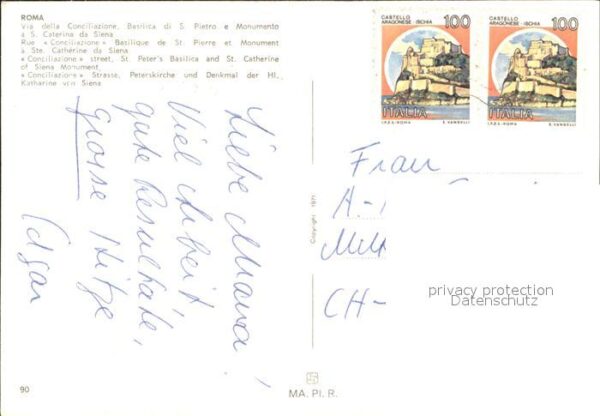 ROMA
Via della Conciliazione, Basilica di S. Pietro e Monumento
a S. Caterina da Siena
Rue «Conciliazione» Basilique de St. Pierre et Monument
à Ste. Cathérine da Siena
«Conciliazione» street, St. Peter's Basilica and St. Catherine
of Siena Monument
«Conciliazione» Strasse, Peterskirche und Denkmal der Hl.,
Katharine von Siena
Liebe Mama!
Viel Arbeit,
gute Resultate,
grosse Hitze
Edgar
90
Copyright 1971
MA. PI. R.
CASTELLO
ARAGONESE-ISCHIA
100
ITALIA
I.P.Z.S.-ROMA
E. VANGELLI
CASTELLO
ARAGONESE-ISCHIA
100
ITALIA
I.P.Z.S.-ROMA
E. VANGELLI
Frau
A-
CH-
privacy protection
Datenschutz